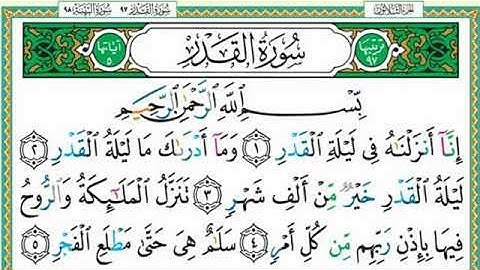 الجزء الثلاثون سورة القدر ٩٧ سورة البينة ٩٨
ترتيبها ٩٧ سُورَةُ الْقَدْرِ آياتها ٥
بِسْمِ اللَّهِ الرَّحْمَٰنِ الرَّحِيمِ
إِنَّآ أَنزَلْنَٰهُ فِى لَيْلَةِ الْقَدْرِ ١ وَمَآ أَدْرَىٰكَ مَا لَيْلَةُ الْقَدْرِ ٢
لَيْلَةُ الْقَدْرِ خَيْرٌ مِّنْ أَلْفِ شَهْرٍ ٣ تَنَزَّلُ الْمَلَٰٓئِكَةُ وَالرُّوحُ
فِيهَا بِإِذْنِ رَبِّهِم مِّن كُلِّ أَمْرٍ ٤ سَلَٰمٌ هِىَ حَتَّىٰ مَطْلَعِ الْفَجْرِ ٥